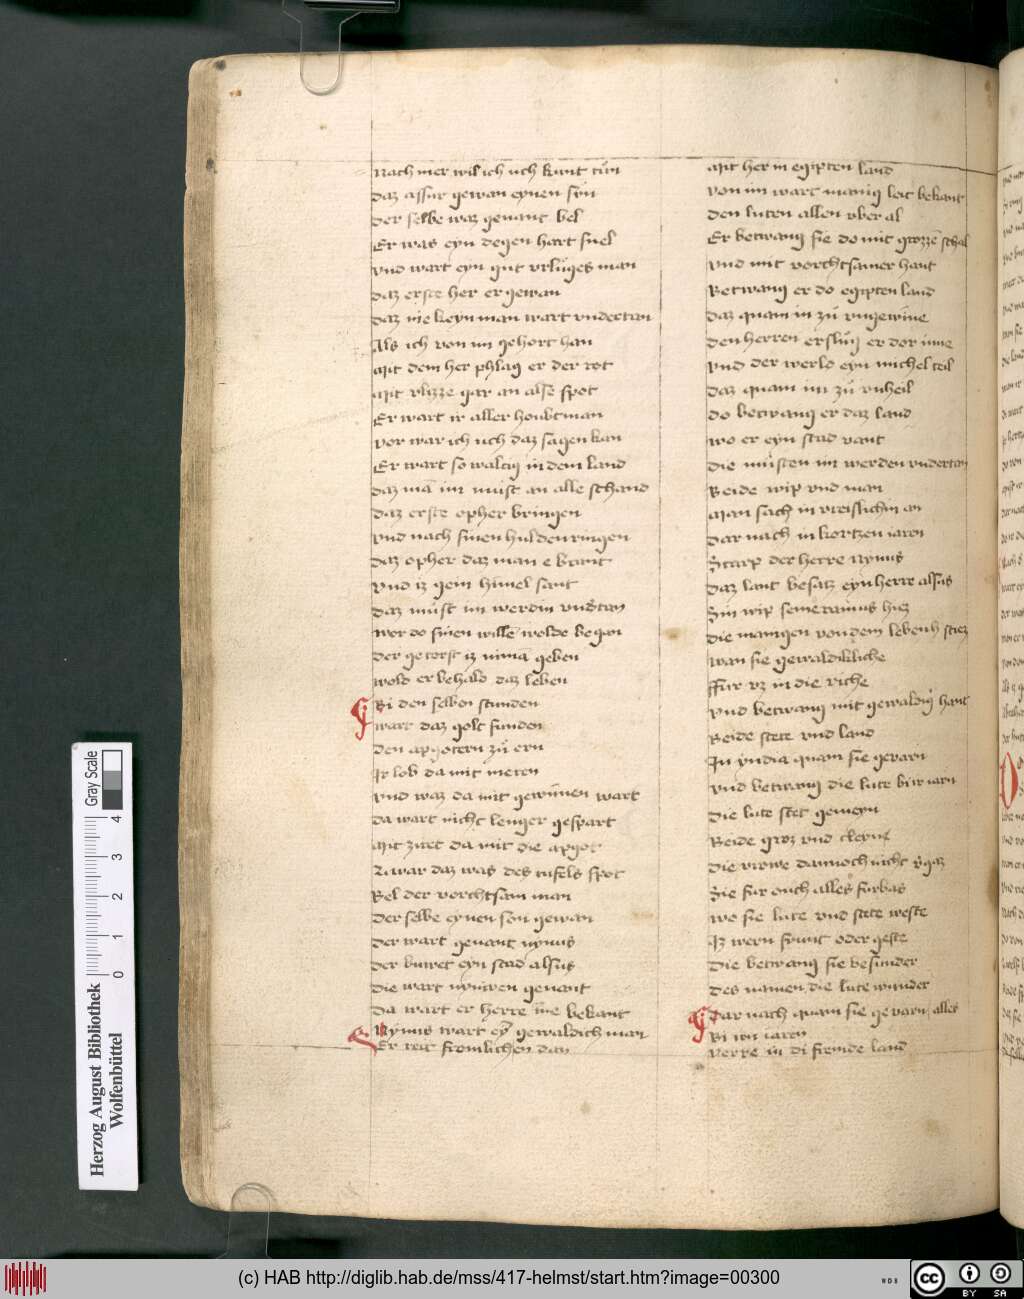 Nach mer wil ich uch kunt tun
daz assur gewan eynen sun
der selbe waz genant bel
Er was eyn degen hart snel
vnd wart eyn gut vrluges man
daz erste her er gewan
daz nie keyn man wart vndertan
Als ich von im gehort han
Mit dem her phlag er der rot
Mit vlizze gar an alse spot
Er wart ir aller houbtman
vor war ich uch daz sagen kan
Er wart so waltig in dem land
daz mā im must an alle schand
daz erste opher bringen
vnd nach sinen hulden ringen
daz opher daz man e brant
vnd iz gem himel sant
daz must im werdin vndtan
wer do sinen willē wolde began
der getorst iz nimā geben
wold er behald daz leben
Bi den selben stunden
wart daz golt funden
den apgotern zu ern
Ir lob da mit meren
vnd waz da mit gewunen wart
da wart nicht lenger gespart
Mit ziret da mit die apgot
Zwar daz was des tufels spot
Bel der vorchtsam man
der selbe eynen son gewan
der wart genant nynus
der buwet eyn stad alsus
die wart nyniven genant
da wart er herre inne bekant
Nynus wart ey gewaldich man
Er reit fromlichen dan
Mit her in egipten land
von im wart manig leit bekant
den luten allen vber al
Er betwang sie do mit grozzē schal
vnd mit vorchtsamer hant
Betwang er do egipten land
daz quam in zu vngewine
den herren erslug er dor inne
vnd der werld eyn michel teil
daz quam im zu vnheil
do betwang er daz land
wo er eyn stad vant
die musten im werden vndertan
Beide wip vnd man
Man sach in vreislichin an
dar nach in kortzen iaren
Starp der herre nynus
daz lant besatz eyn herre alsus
Sin wip semeramus hiez
die manigen von dem leben stiez
wan sie gewaldikliche
ffur vz in die riche
vnd betwang mit gewaldig hant
Beide stete vnd land
In yndia quam sie gevarn
vnd betwang die lute bi iarn
die lute stet gemeyn
Beide groz vnd cleyne
die vrowe dannoch nicht vgaz
Sie fur ouch alles furbas
wo sie lute vnd stete weste
Iz wern frunt oder geste
die betwang sie besunder
des namen die lute wunder
dar nach quam sie gevarn alles
Bi iren iaren
verre in di fremde land
Herzog August Bibliothek
Wolfenbüttel
0 1 2 3 4
Gray Scale
(c) HAB http://diglib.hab.de/mss/417-helmst/start.htm?image=00300
WDB
cc BY SA